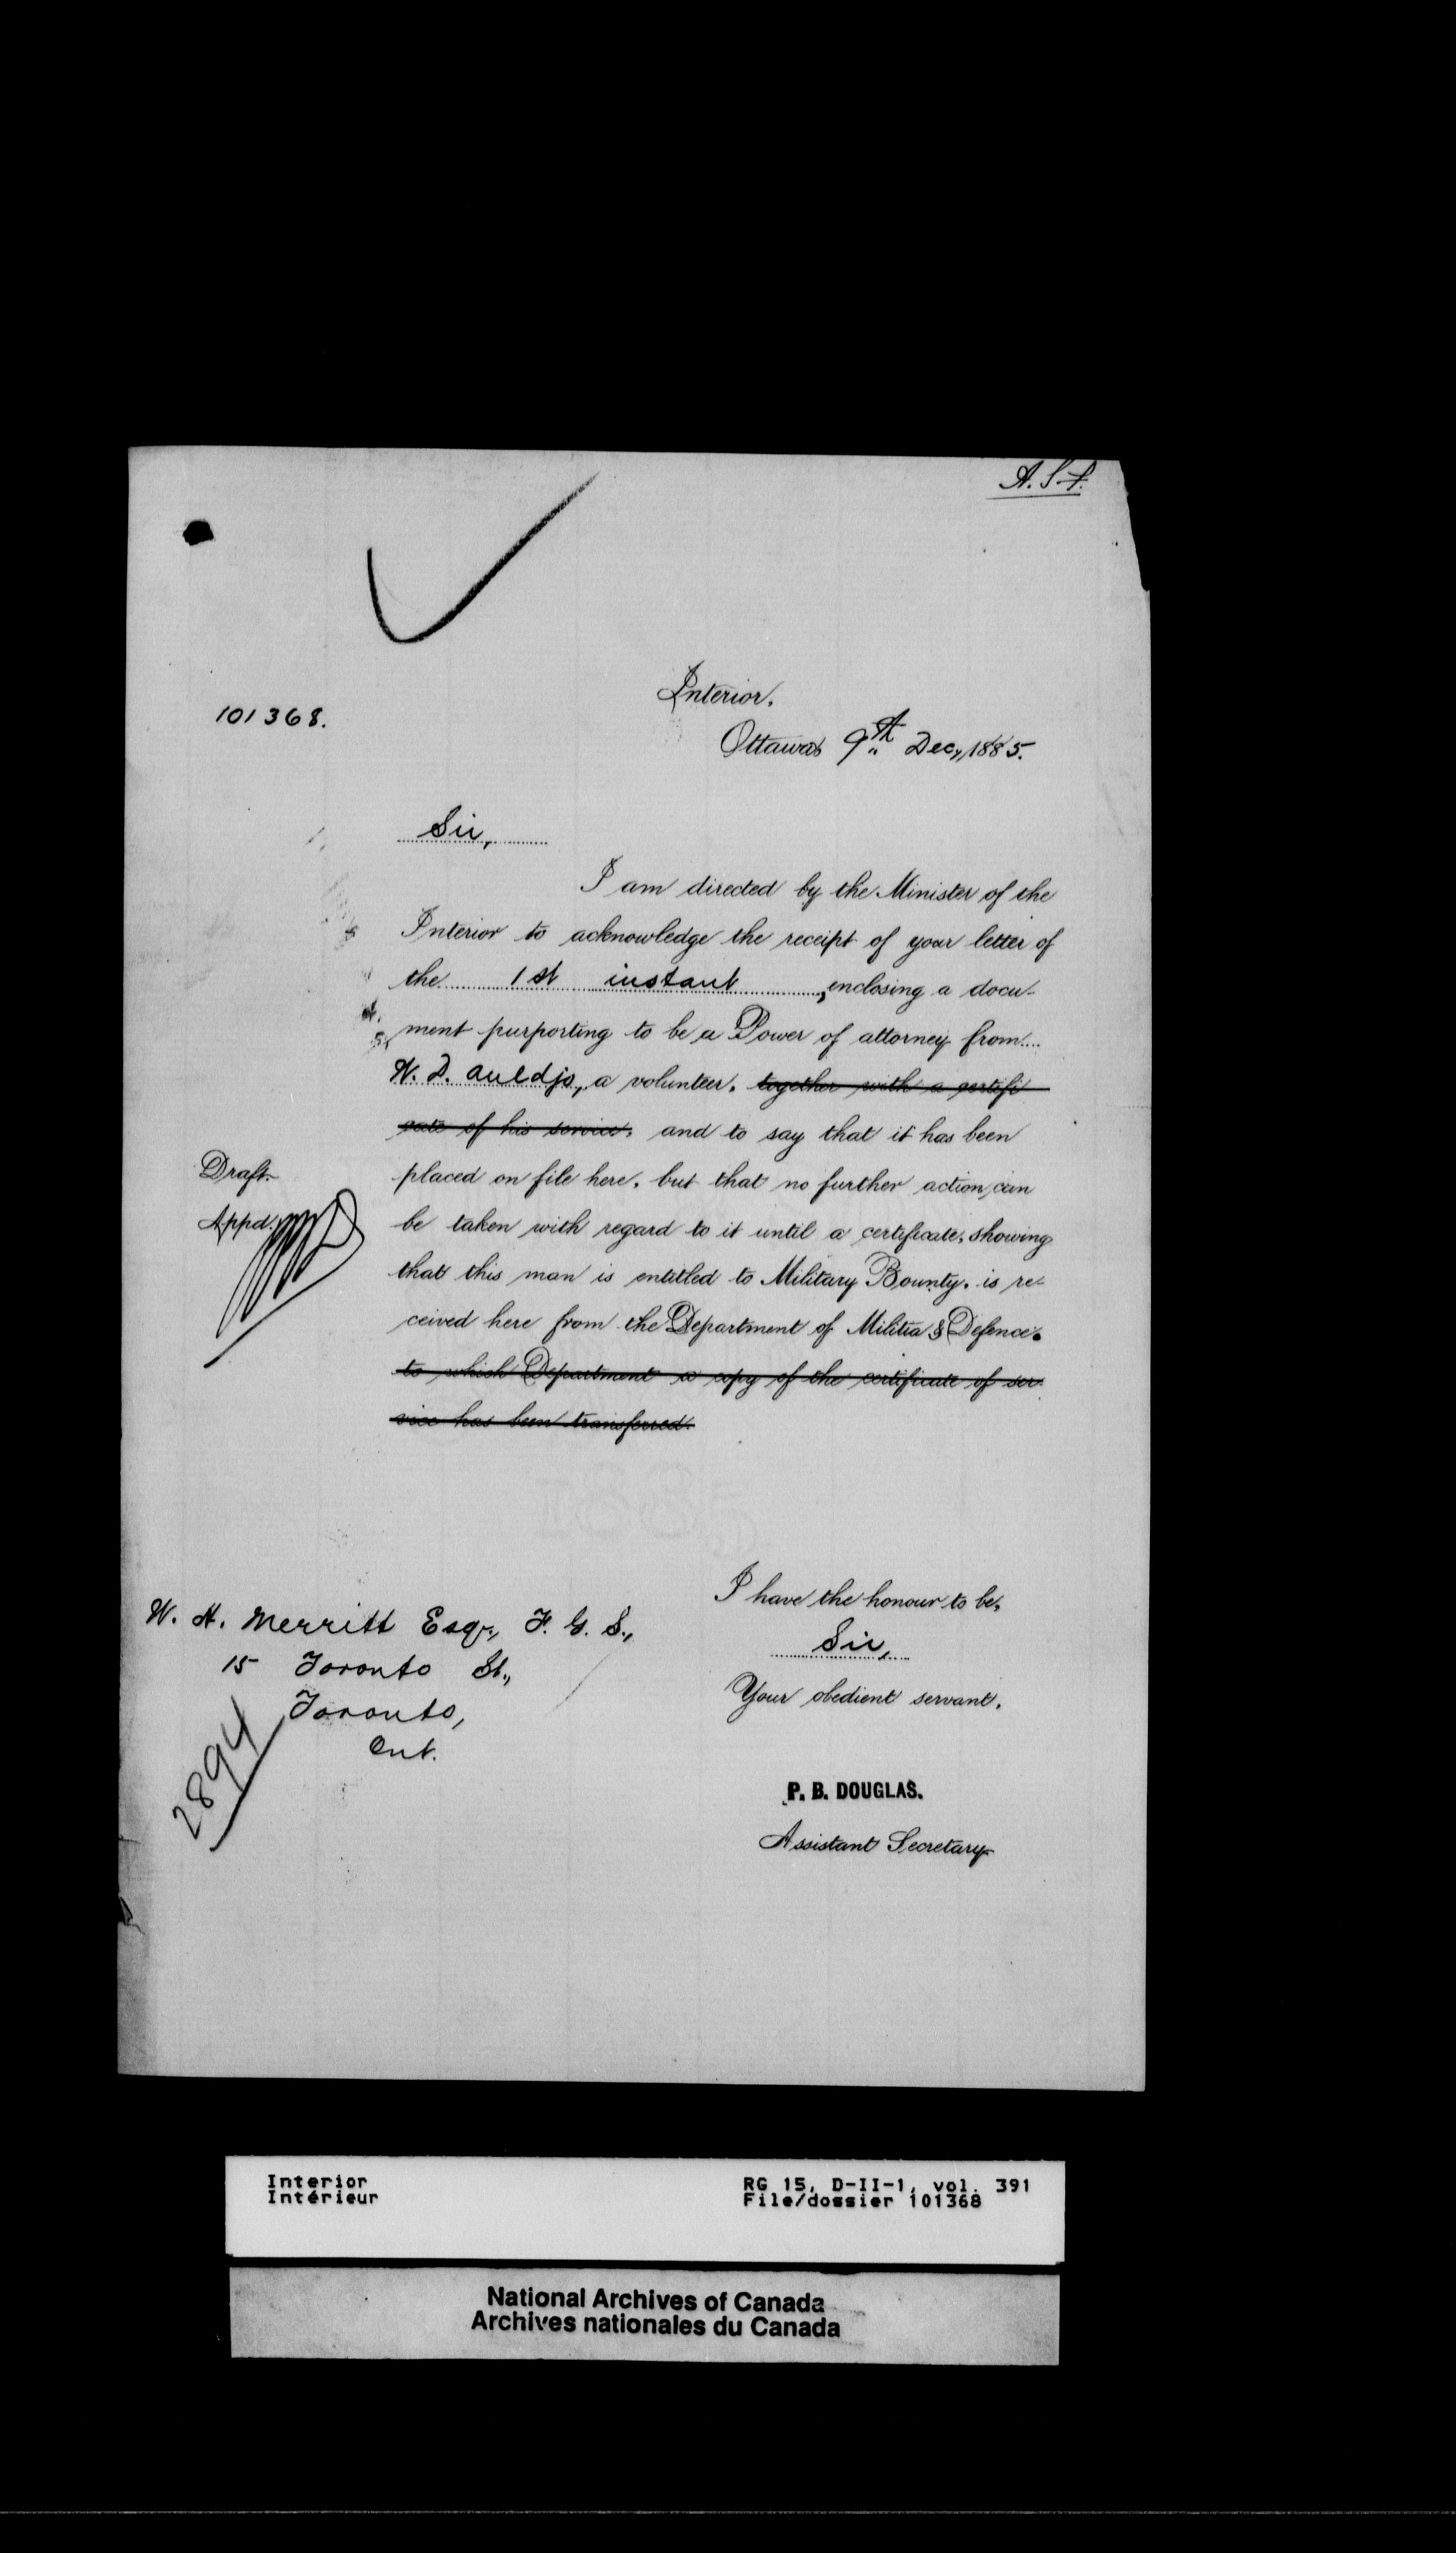 Interior.
101368.
Ottawa 9th Dec, 1885.
Sir,
I am directed by the Minister of the
Interior to acknowledge the receipt of your letter of
the 1st instant, enclosing a docu-
ment purporting to be a Power of attorney from
W. D. Auldjo, a volunteer, together with a certifi
cate of his service, and to say that it has been
placed on file here, but that no further action can
be taken with regard to it until a certificate, showing
that this man is entitled to Military Bounty, is re-
ceived here from the Department of Militia & Defence.
to which Department a copy of the certificate of ser
vice has been transferred.
Draft
Appd.
I have the honour to be,
Sir,
Your obedient servant,
P. B. DOUGLAS.
Assistant Secretary
W. H. Merritt Esqr., F. G. S.,
15 Toronto St.,
Toronto,
Ont.
2894
Interior
Intérieur
RG 15, D-II-1, vol. 391
File/dossier 101368
National Archives of Canada
Archives nationales du Canada